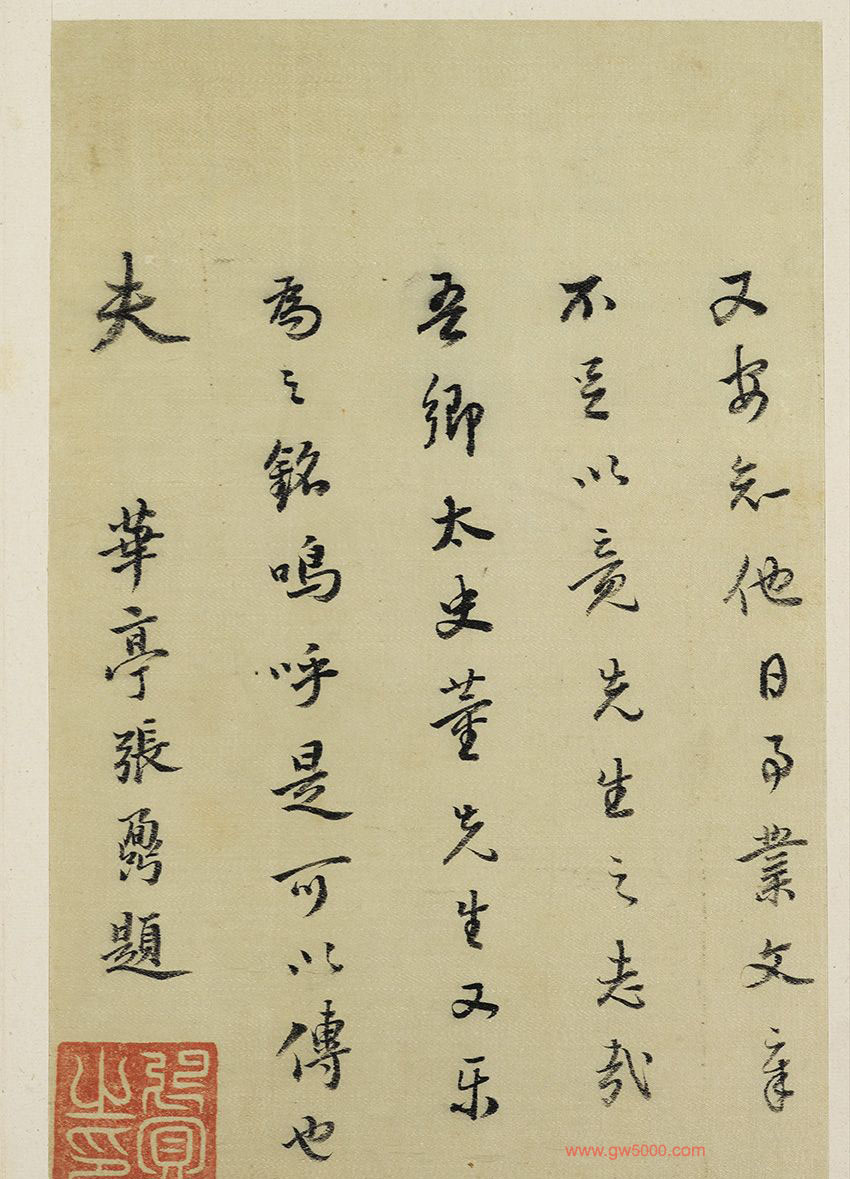 又安知他日事業文章
不足以竟先生之志哉
吾鄉太史董先生又樂
為之銘嗚呼是可以傳也
夫 華亭張鼐題
www.gw5000.com